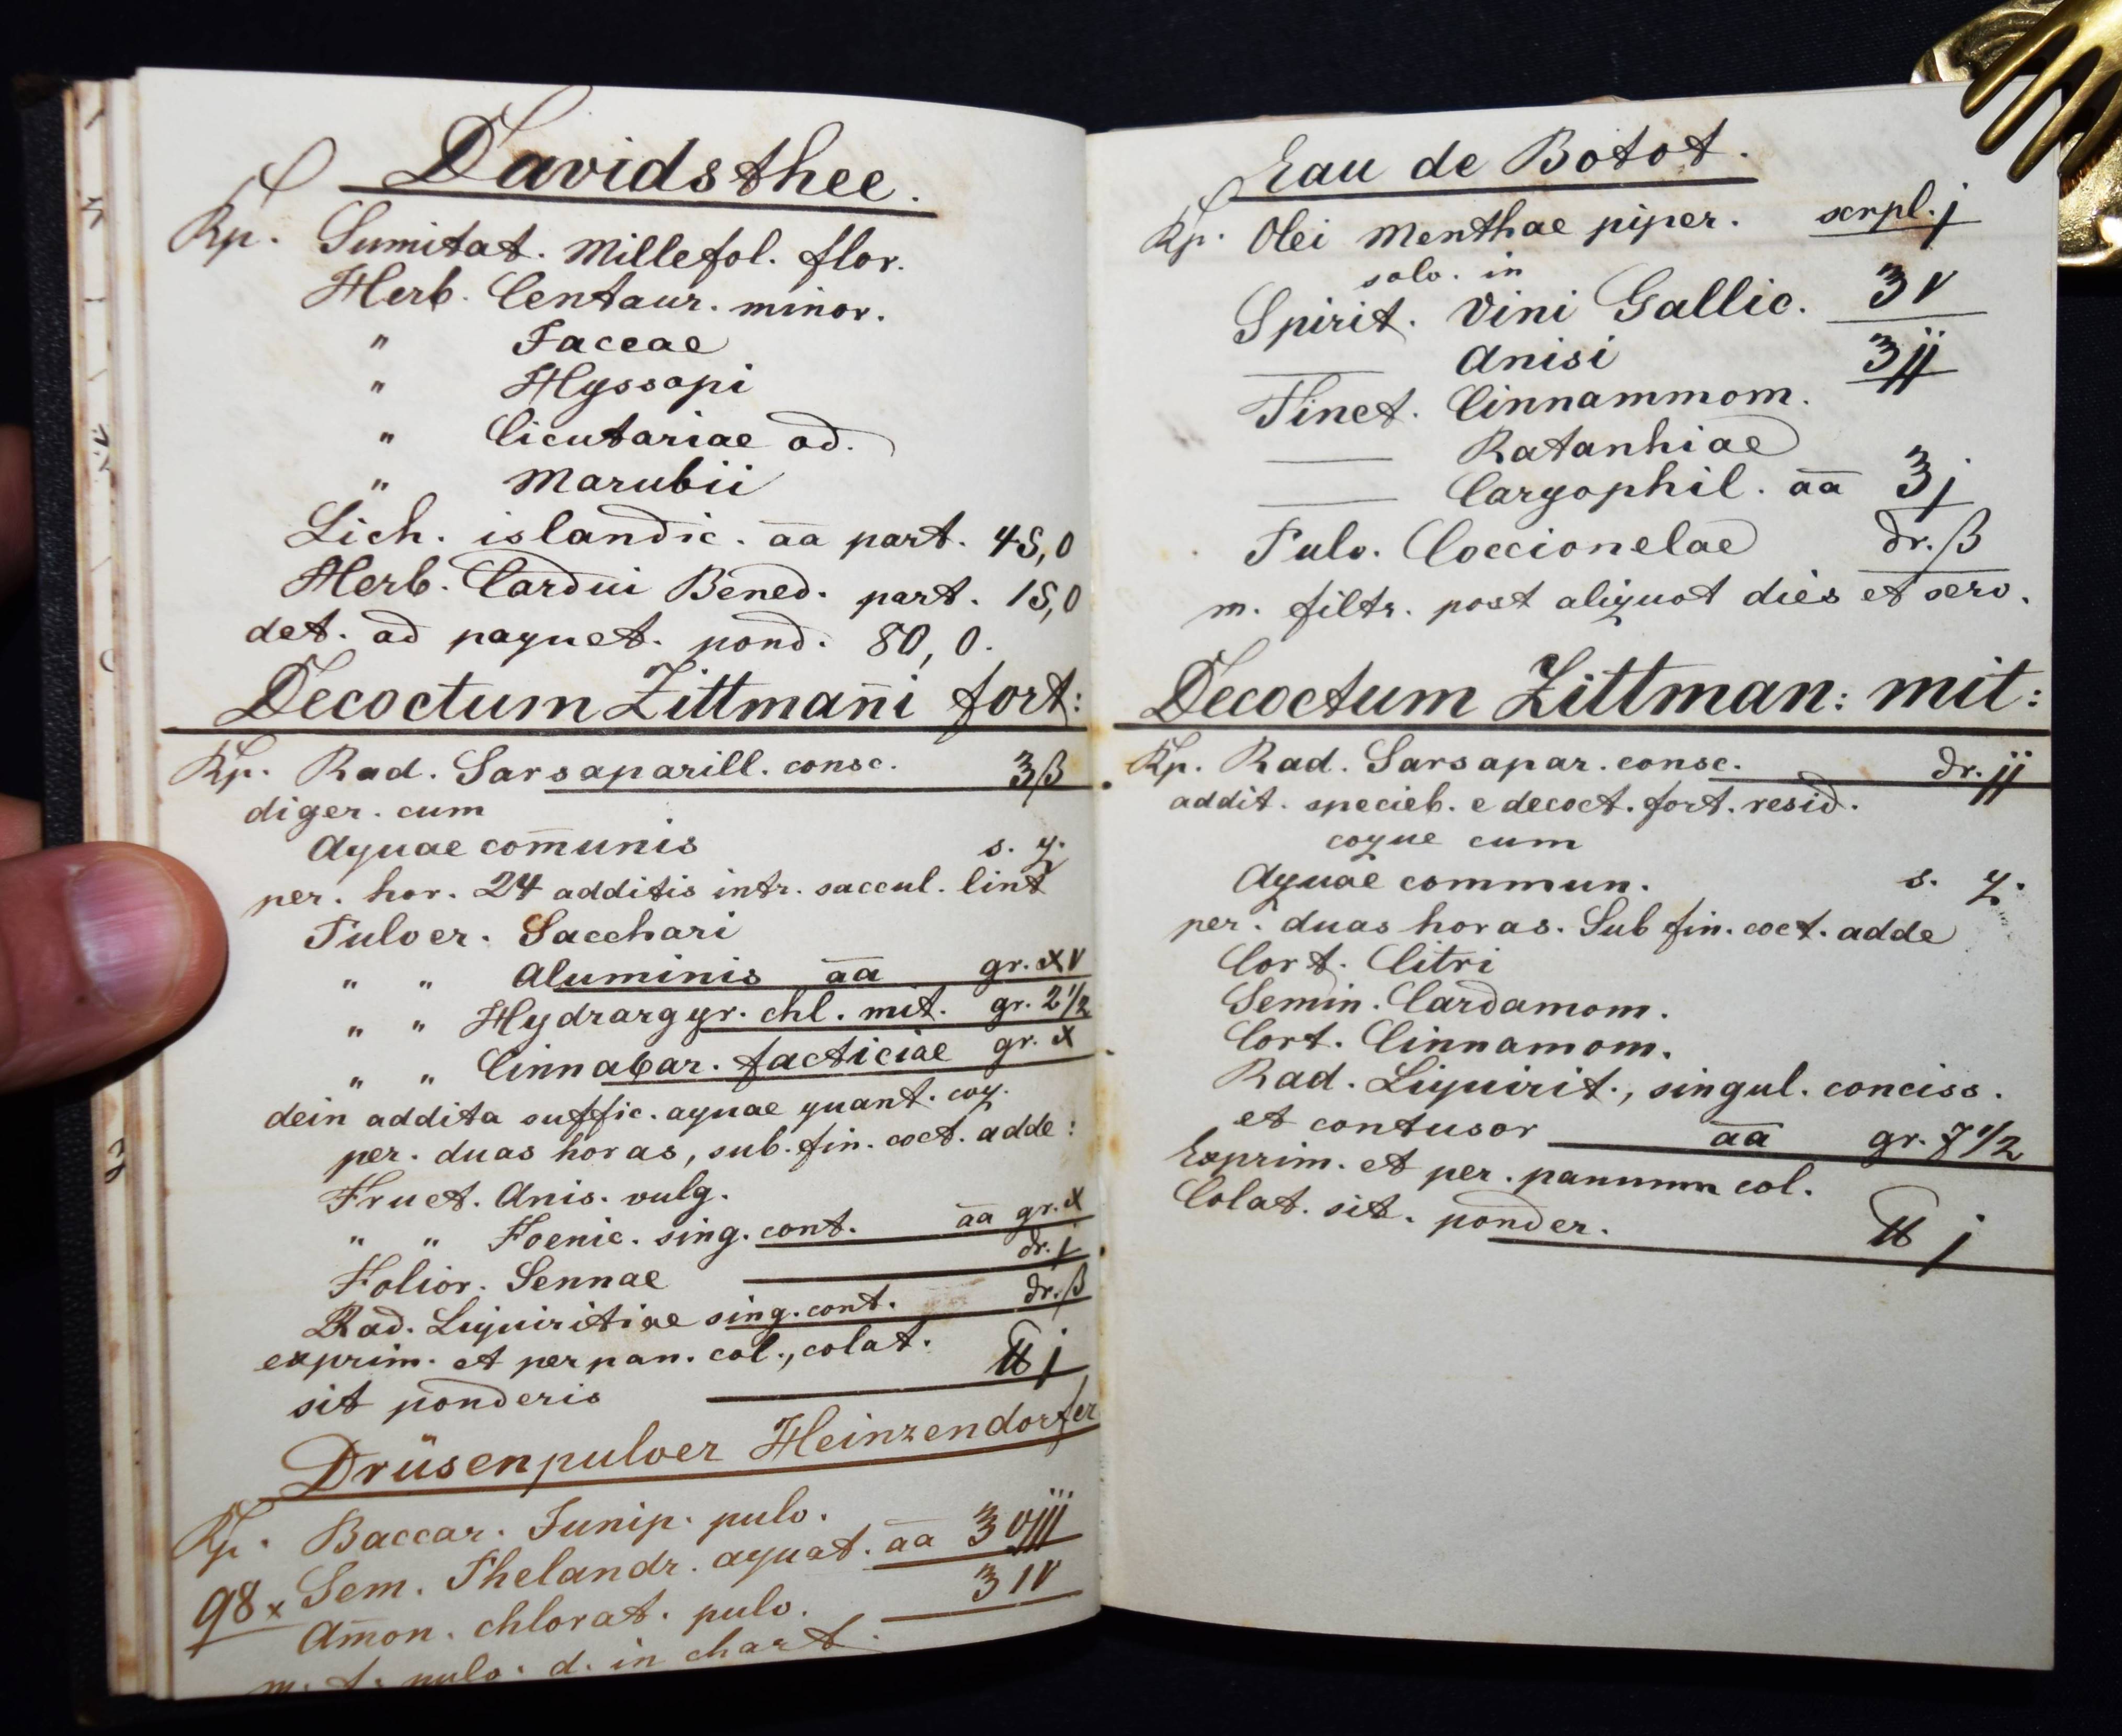 Davidsthee.
Rp. Sumitat. Millefol. flor.
Herb. Centaur. minor.
" Jaceae
" Hyssopi
" Cicutariae od.
" Marubii
Lich. islandic. āā part. 45,0
Herb. Cardui Bened. part. 15,0
det. ad paquet. pond. 80,0.
Decoctum Zittman̄i fort:
Rp. Rad. Sarsaparill. consc. ʒβ
diger. cum
Aquae com̄unis s. q.
per. hor. 24 additis intr. saccul. lint
Pulver. Sacchari
" " Aluminis āā gr. XV
" " Hydrargyr. chl. mit. gr. 2 1/2
" " Cinnabar. facticiae gr. X
dein addita suffic. aquae quant. coq.
per. duas horas, sub. fin. coct. adde:
Fruct. Anis. vulg.
" " Foenic. sing. cont. āā gr. X
Folior. Sennae dr. j
Rad. Liquiritiae sing. cont. dr. β
exprim. et per pan. col., colat.
sit ponderis ℔ j
Drüsenpulver Heinzendorfer
Rp. Baccar. Junip. pulv.
Sem. Phelandr. aquat. āā ʒ VIII
98 x Am̄on. chlorat. pulv. ʒ IV
m. f. pulv. d. in chart.
Eau de Botot.
Rp. Olei Menthae piper. scrpl. j
solv. in
Spirit. Vini Gallic. ℥ V
— Anisi ℥ jj
Tinct. Cinnammom.
— Ratanhiae
— Caryophil. āā ℥ j
Pulv. Coccionelae dr. β
m. filtr. post aliquot dies et serv.
Decoctum Zittman: mit:
Rp. Rad. Sarsapar. consc. dr. jj
addit. specieb. e decoct. fort. resid.
coque cum
Aquae commun. s. q.
per. duas horas. Sub fin. coct. adde
Cort. Citri
Semin. Cardamom.
Cort. Cinnamom.
Rad. Liquirit., singul. conciss.
et contusor āā gr. 7 1/2
Exprim. et per. panumm col.
Colat. sit. ponder. ℔ j